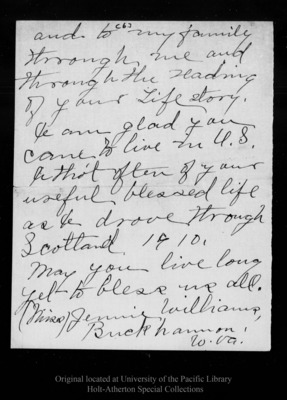 (6)
and to my family
through me and
through the reading
of your Life story.
I am glad you
came to live in U.S.
I tho't often of your
useful blessed life
as I drove through
Scotland 1910.
May you live long
yet to bless us all.
(Miss) Jennie Williams,
Buckhannon,
W. Va.
Original located at University of the Pacific Library
Holt-Atherton Special Collections